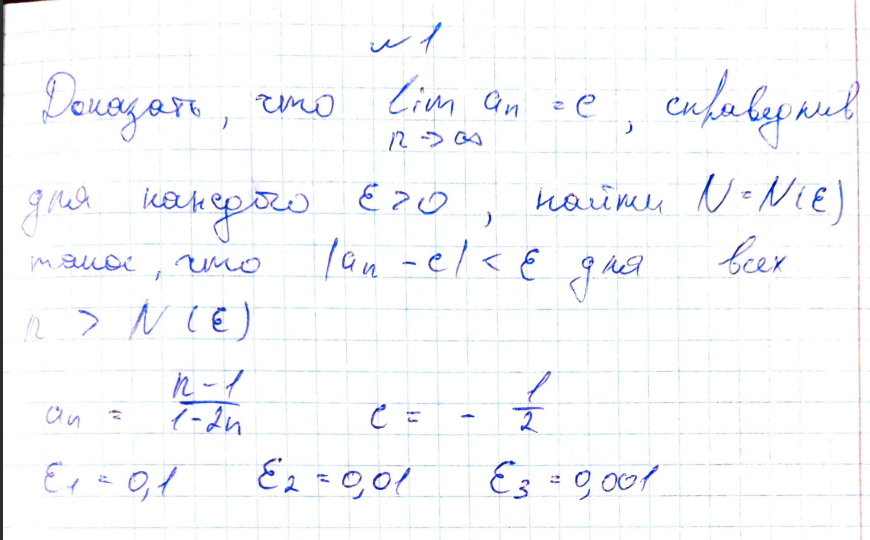 №1
Доказать, что lim aₙ = c, справедлив
n → ∞
для каждого ε > 0, найти N = N(ε)
такое, что |aₙ - c| < ε для всех
n > N(ε)
aₙ = (n - 1)/(1 - 2n)    c = - 1/2
ε₁ = 0,1    ε₂ = 0,01    ε₃ = 0,001